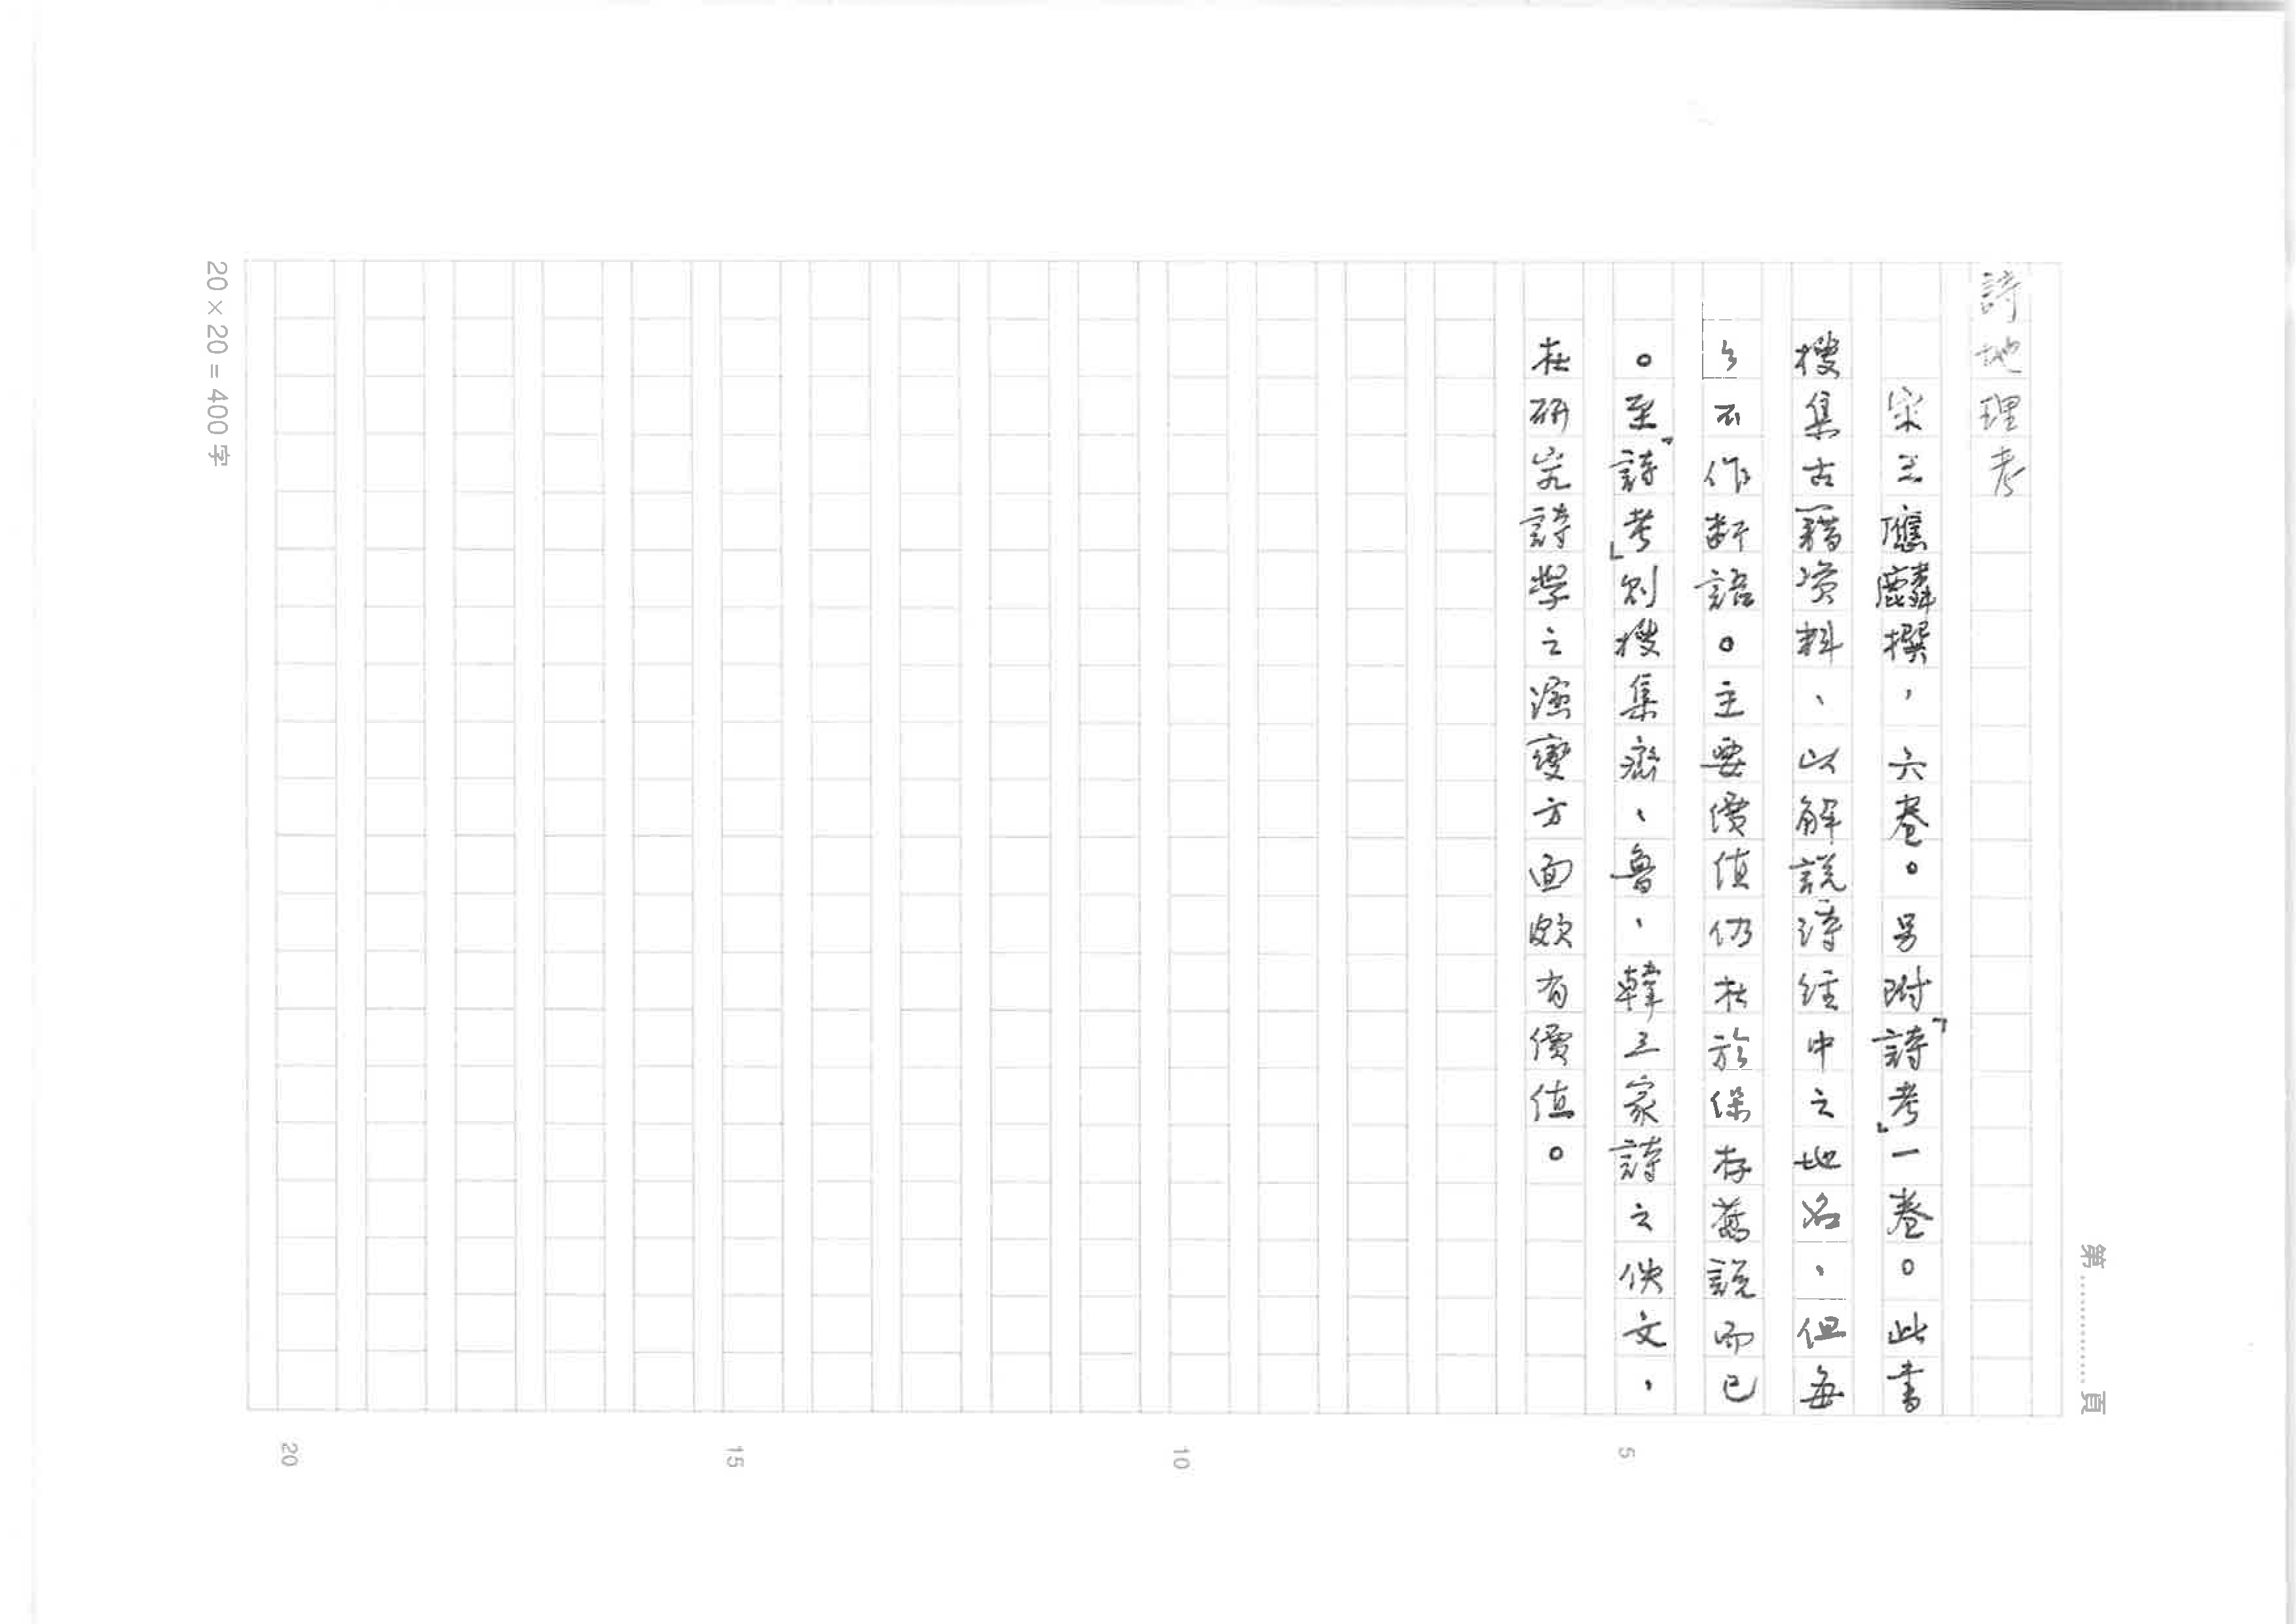 詩地理考
宋王應麟撰，六卷。另附「詩考」一卷。此書
搜集古籍資料、以解說詩經中之地名、但每
多不作斷語。主要價值仍在於保存舊說而已
。至「詩考」則搜集齊、魯、韓三家詩之佚文，
在研究詩學之演變方面頗有價值。
第............頁
5
10
15
20
20×20=400字